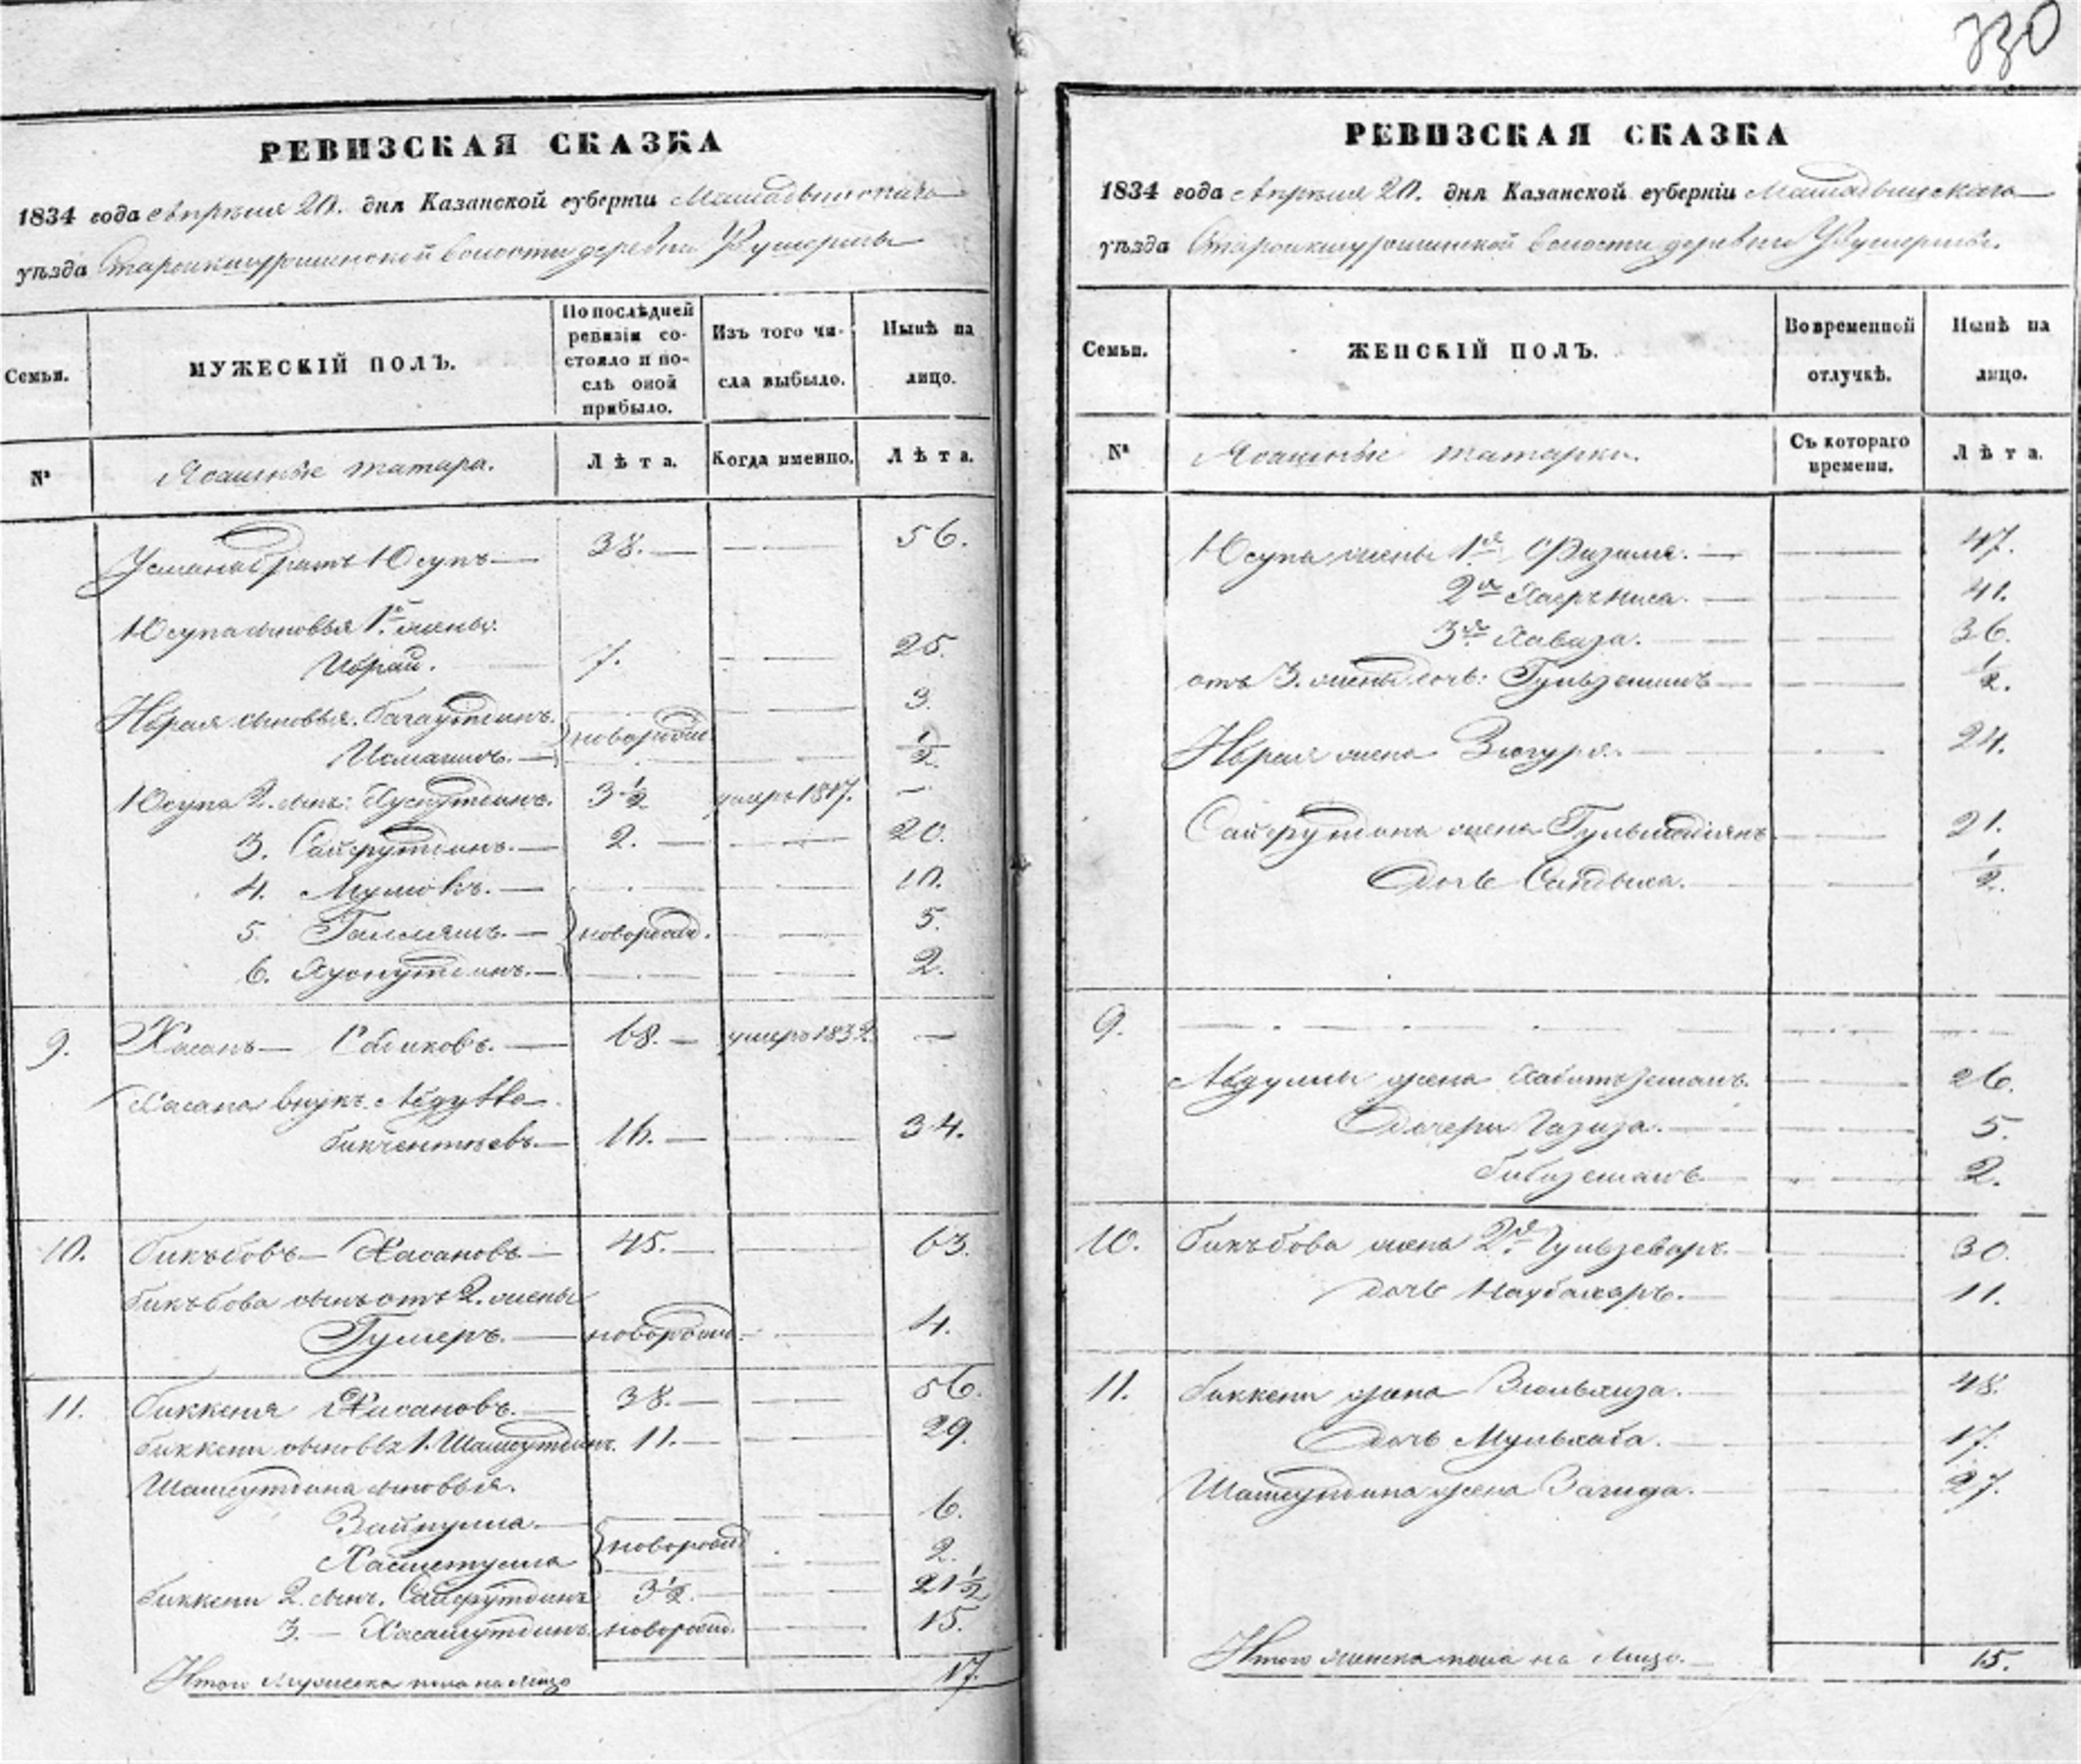 330
РЕВИЗСКАЯ СКАЗКА
1834 года Апреля 20. дня Казанской губернiи Мамадышскаго
уѣзда волости деревни
Семьи.
МУЖЕСКIЙ ПОЛЪ.
По послѣдней ревизiи состояло и послѣ оной прибыло.
Изъ того числа выбыло.
Нынѣ на лицо.
№
Ясашные татара.
Лѣта.
Когда именно.
Лѣта.
Усмана братъ Юсупъ — 38. — 56.
Юсупа сыновья 1й жены:
Ибрай. 7. 25.
Ибрая сыновья. Багаутдинъ. 3.
новорожд
Исмагилъ. — 1/2
Юсупа 2. сынъ: Хуснутдинъ. 3 1/2 умеръ 1817. —
3. Сайфутдинъ. — 2. — 20.
4. — 10.
5. — новорожд. 5.
6. Хуснутдинъ. — 2.
9. Хасанъ — — 68. — умеръ 1832. —
Хасана внукъ. Абдулла
Бикчентѣевъ. — 16. — 34.
10. Бикъбовъ — Хасановъ — 45. — 63.
Бикъбова сынъ отъ 2. жены
Гумеръ. — новорожд. 4.
11. Биккеня Хасановъ. 38. — 56.
Биккени сыновья 1. Шамсутдинъ. 11. — 29.
Шамсутдина сыновья.
6.
новорожд
2.
Биккени 2. сынъ. Сайфутдинъ 3 1/2. — 21 1/2
3. — Хасамутдинъ. новорожд. 15.
Итого мужеска пола на лицо 17.
РЕВИЗСКАЯ СКАЗКА
1834 года Апреля 20. дня Казанской губернiи Мамадышскаго
уѣзда волости деревни
Семьи.
ЖЕНСКIЙ ПОЛЪ.
Во временной отлучкѣ.
Нынѣ на лицо.
№
Ясашные татарки.
Съ котораго времени.
Лѣта.
Юсупа жены 1я Фазиля. — 47.
2я — 41.
3я 36.
отъ 3. жены дочь: Гульземалъ — 1/2.
Ибрая жена Зюгура. 24.
Сайфутдина жена 21.
Дочь 1/2.
9. —
Абдуллы жена 26.
Дочери Газиза. — 5.
Бибиземалъ 2.
10. Бикъбова жена 2я. Гульзеваръ. — 30.
дочь Наубахаръ. — 11.
11. Биккени жена — 48.
Дочь 17.
Шамсутдина жена Загида. — 27.
Итого женска пола на лицо. — 15.